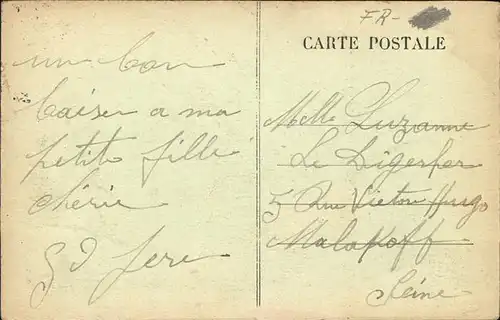 FR-
CARTE POSTALE
un bon
baiser a ma
petite fille
chérie
Gd Pere
Melle Suzanne
Le
5 Rue Victor Hugo
Malakoff
Seine